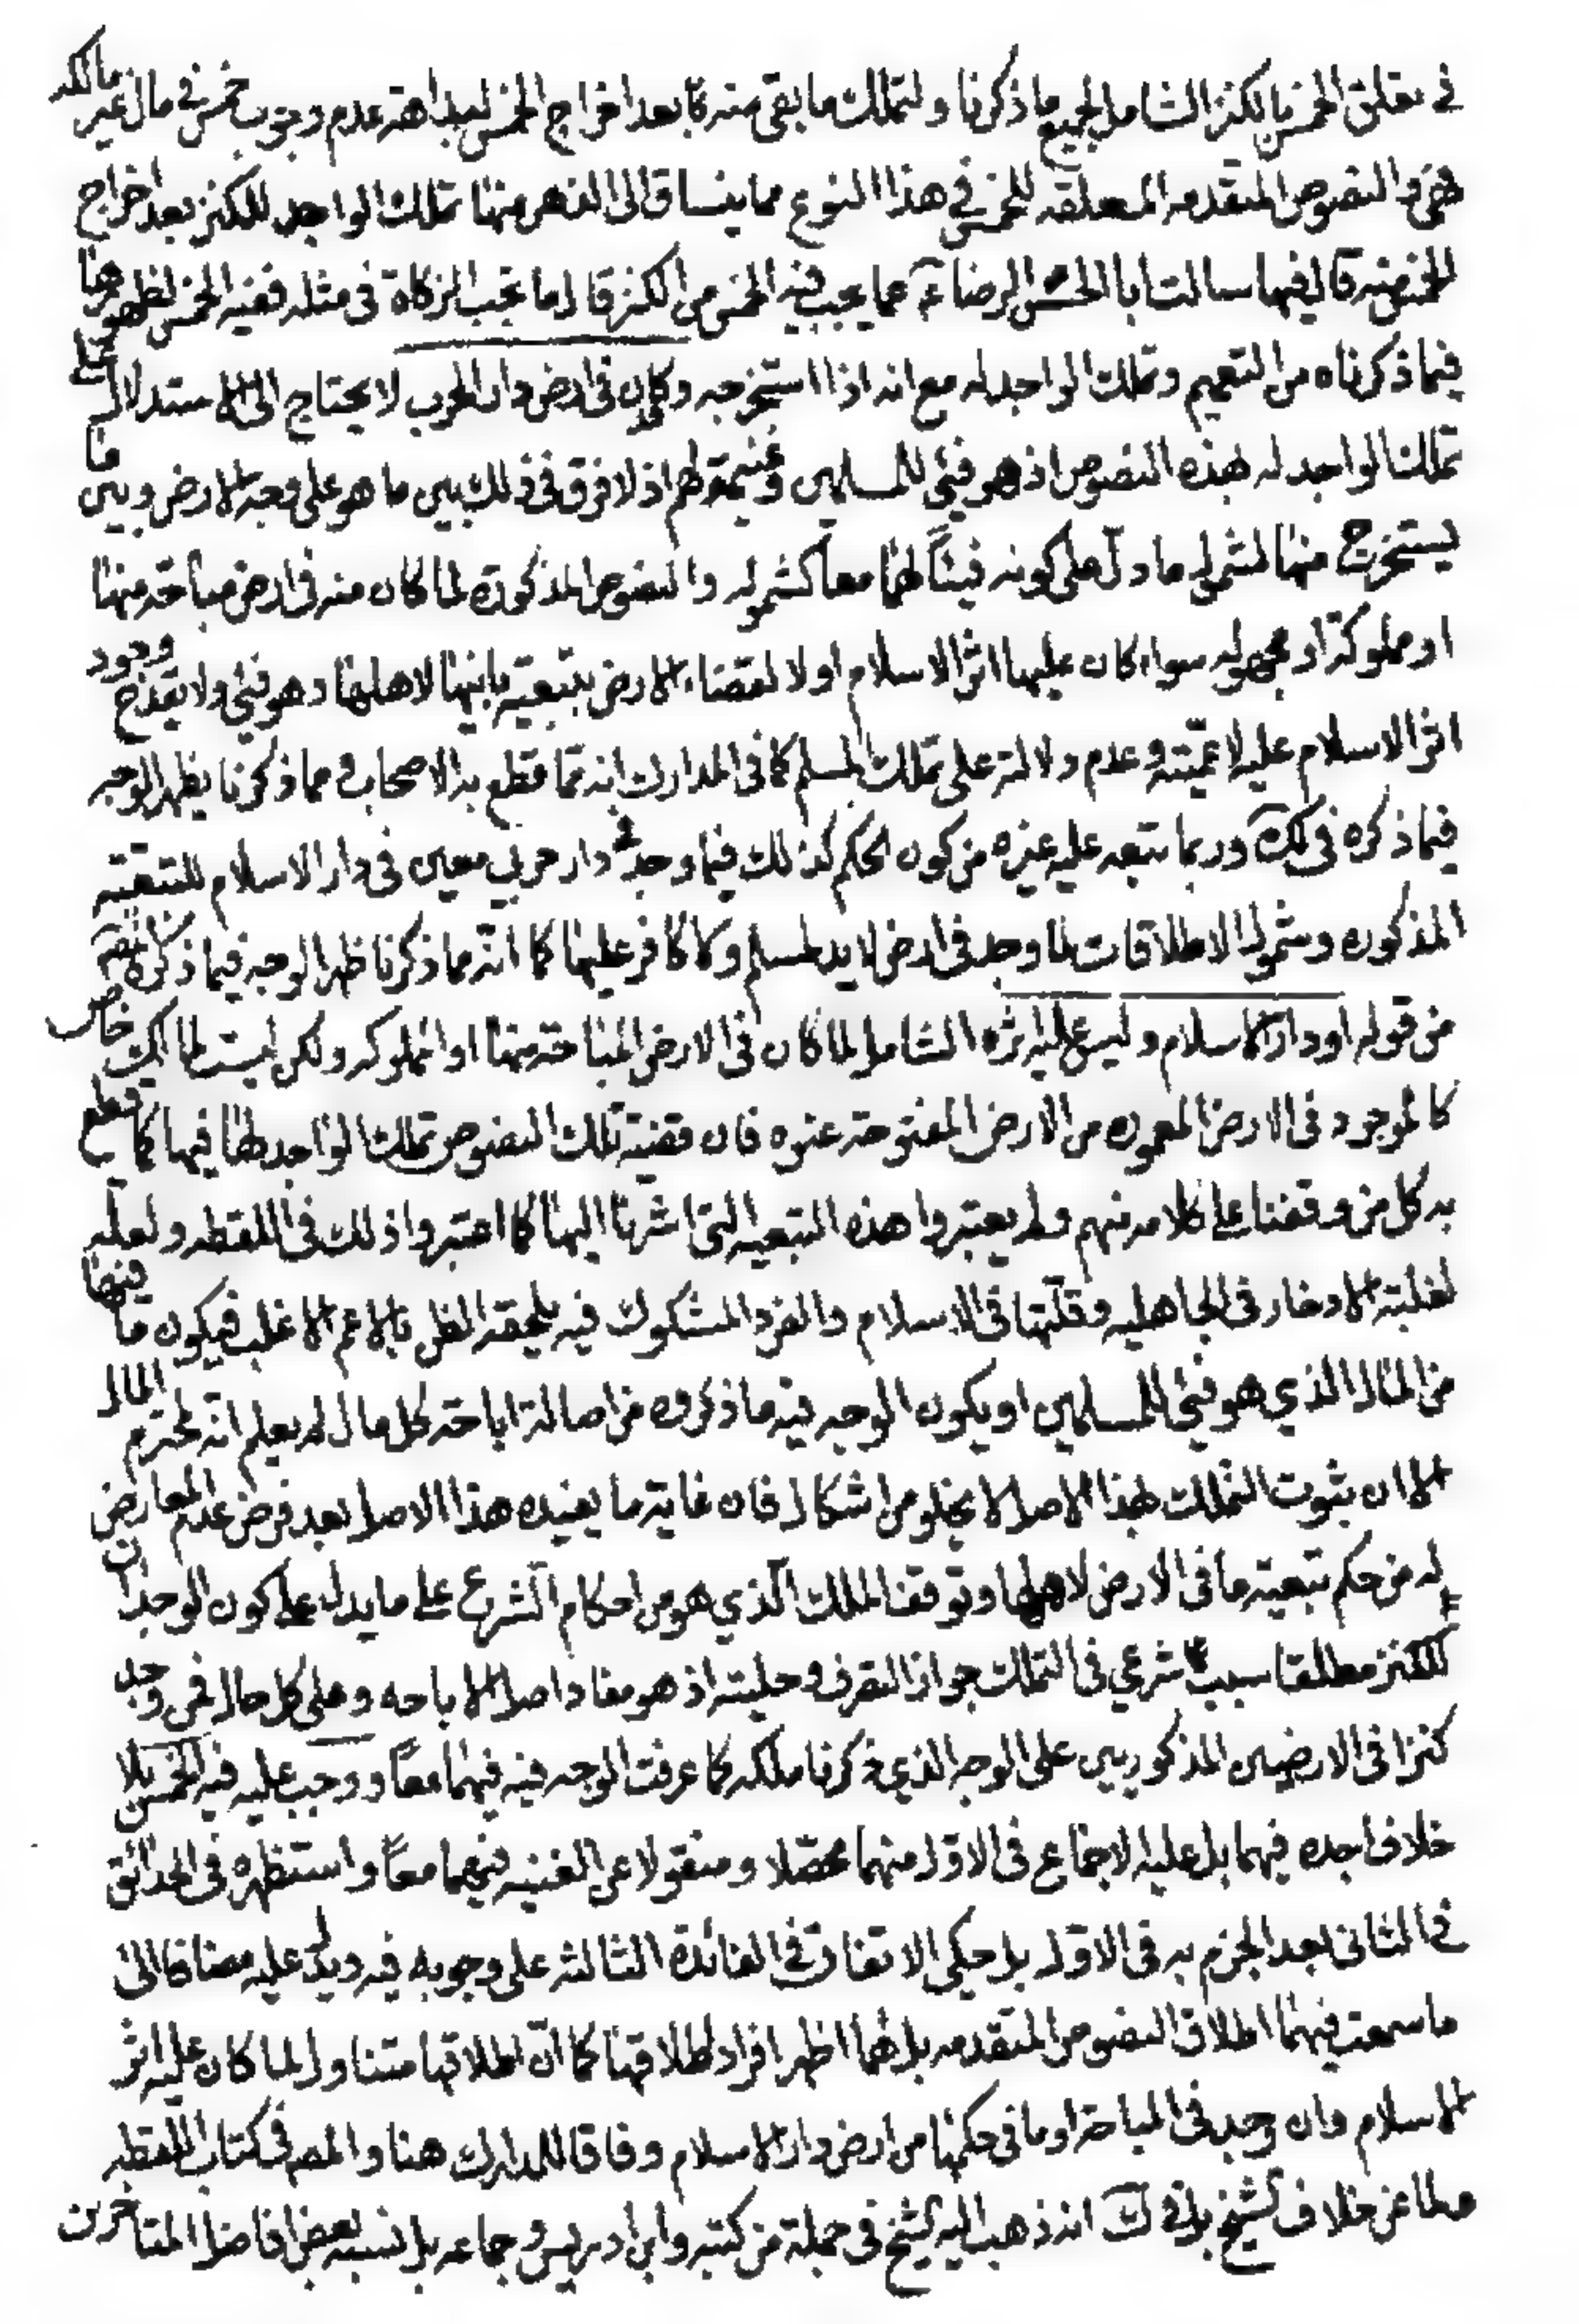 في تعلق الخمس بالكنز الشامل لجميع ما ذكرنا ولتملك ما بقي منه بعد اخراج الخمس لبداهة عدم وجوب خمس في مال غير مالكه
والنصوص المتقدمه المعلقه للخمس في هذا النوع مما ينساق الى الذهن منها تملك الواجد للكنز بعد اخراج
الخمس منه قال فيها سالت ابا الحسن الرضا ع عما يجب فيه الخمس من الكنز قال ما تجب الزكاة في مثله ففيه الخمس لظهورها
فيما ذكرناه من التعميم وتملك الواجد له مع انه اذا استخرجه وكان في ارض دار الحرب لا يحتاج الى الاستدلال على
تملك الواجد له بهذه النصوص اذ هو فيئ للمسلمين وغنيمة لهم اذ لا فرق في ذلك بين ما هو على وجه الارض وبين ما
يستخرج منها لشمول ما دل على كونه فيئاً لهما معاً كشموله والنصوص المذكورة لما كان منه في ارض مباحة منها
او مملوكة او مجهوله سواء كان عليها اثر الاسلام او لا لقضاء الارض بتبعية ما فيها لاهلها وهو فيئ ولا يقدح وجود
اثر الاسلام عليه لاعميته وعدم دلالته على تملك المسلم كما في المدارك انه مما قطع به الاصحاب ومما ذكرنا يظهر الوجه
فيما ذكره في لك وربما تبعه عليه غيره من كون الحكم كذلك فيما وجد في دار حربي معين في دار الاسلام للتبعيه
المذكوره وشمول الاطلاقات لما وجد في ارض لا يد لمسلم ولا كافر عليها كما انه مما ذكرنا ظهر الوجه فيما ذكره المصنف
من قوله او دار الاسلام وليس عليه اثره الشامل لما كان في الارض المباحة منها او المملوكه ولكن ليست لمالك خاص
كالموجود في الارض المعموره من الارض المفتوحة عنوه فان قضية تلك النصوص تملك الواجد لها فيها كما قطع
به كل من وقفنا على كلامه منهم ولم يعتبروا هذه التبعيه التي اشرنا اليها كما اعتبروا ذلك في اللقطه ولعله
لغلبة الادخار في الجاهليه وقلتها في الاسلام والفرد المشكوك فيه يلحقه الظن بالاعم الاغلب فيكون ما فيها
من المال الذي هو فيئ للمسلمين او يكون الوجه فيه ما ذكروه من اصالة اباحة كل مال لم يعلم انه محترم المال
الا ان ثبوت التملك بهذا الاصل لا يخلو من اشكال فان غاية ما يفيده هذا الاصل بعد فرض عدم المعارض
له من حكم تبعية ما في الارض لاهلها وتوقف الملك الذي هو من احكام الشرع على ما يدل على كون الوجدان
للكنز مطلقا سبب شرعي في التملك جواز التصرف وحليته اذ هو مفاد اصل الاباحه وعلى كل حال فمن وجد
كنزا في الارضين المذكورين على الوجه الذي ذكرنا ملكه كما عرفت الوجه فيه فيهما معاً ووجب عليه فيه الخمس بلا
خلاف اجده فيهما بل عليه الاجماع في الاول منهما محصلا ومنقولا عن الغنيه فيهما معاً واستظهره في الحدائق
في الثاني بعد الجزم به في الاول بل حكى الاتفاق في الفائدة الثالثه على وجوبه فيه ويدل عليه مضافا الى
ما سمعت فيهما اطلاق النصوص المتقدمه بل هما اظهر افراد اطلاقها كما ان اطلاقها متناول لما كان عليه اثر
الاسلام وان وجد في المباحة او ما في حكمها من ارض دار الاسلام وفاقا للمدارك هنا والمصـ في كتاب اللقطه
خلاف الشيخ بل في لك انه ذهب اليه الشيخ في جملة من كتبه وابن ادريس وجماعه بل نسبه بعض افاضل المتاخرين